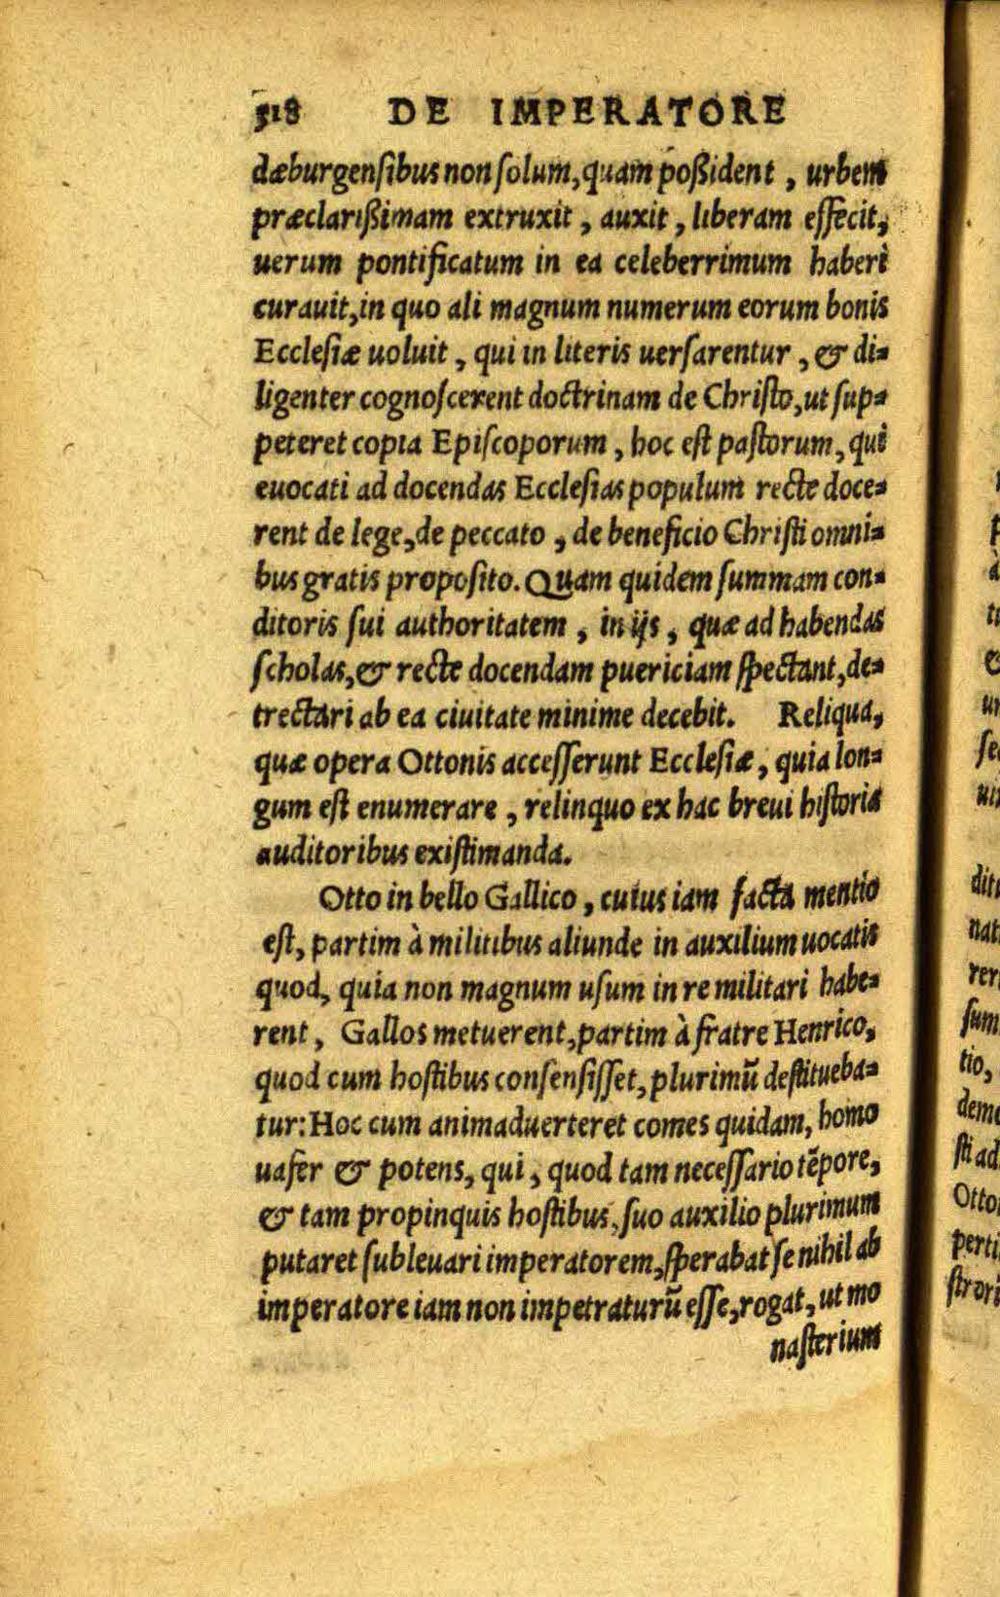 518 DE IMPERATORE
dæburgensibus non solum, quam poßident, urbem
præclarißimam extruxit, auxit, liberam effecit,
uerum pontificatum in ea celeberrimum haberi
curauit, in quo ali magnum numerum eorum bonis
Ecclesiæ uoluit, qui in literis uersarentur, & di=
ligenter cognoscerent doctrinam de Christo, ut sup=
peteret copia Episcoporum, hoc est pastorum, qui
euocati ad docendas Ecclesias populum recte doce=
rent de lege, de peccato, de beneficio Christi omni=
bus gratis proposito. Quam quidem summam con=
ditoris sui authoritatem, in ijs, quæ ad habendas
scholas, & recte docendam puericiam spectant, de=
trectari ab ea ciuitate minime decebit. Reliqua,
quæ opera Ottonis accesserunt Ecclesiæ, quia lon=
gum est enumerare, relinquo ex hac breui historia
auditoribus existimanda.
Otto in bello Gallico, cuius iam facta mentio
est, partim à militibus aliunde in auxilium uocatis
quod, quia non magnum usum in re militari habe=
rent, Gallos metuerent, partim à fratre Henrico,
quod cum hostibus consensisset, plurimũ destitueba=
tur: Hoc cum animaduerteret comes quidam, homo
uafer & potens, qui, quod tam necessario tẽpore,
& tam propinquis hostibus, suo auxilio plurimum
putaret subleuari imperatorem, sperabat se nihil ab
imperatore iam non impetraturũ esse, rogat, ut mo
nasterium